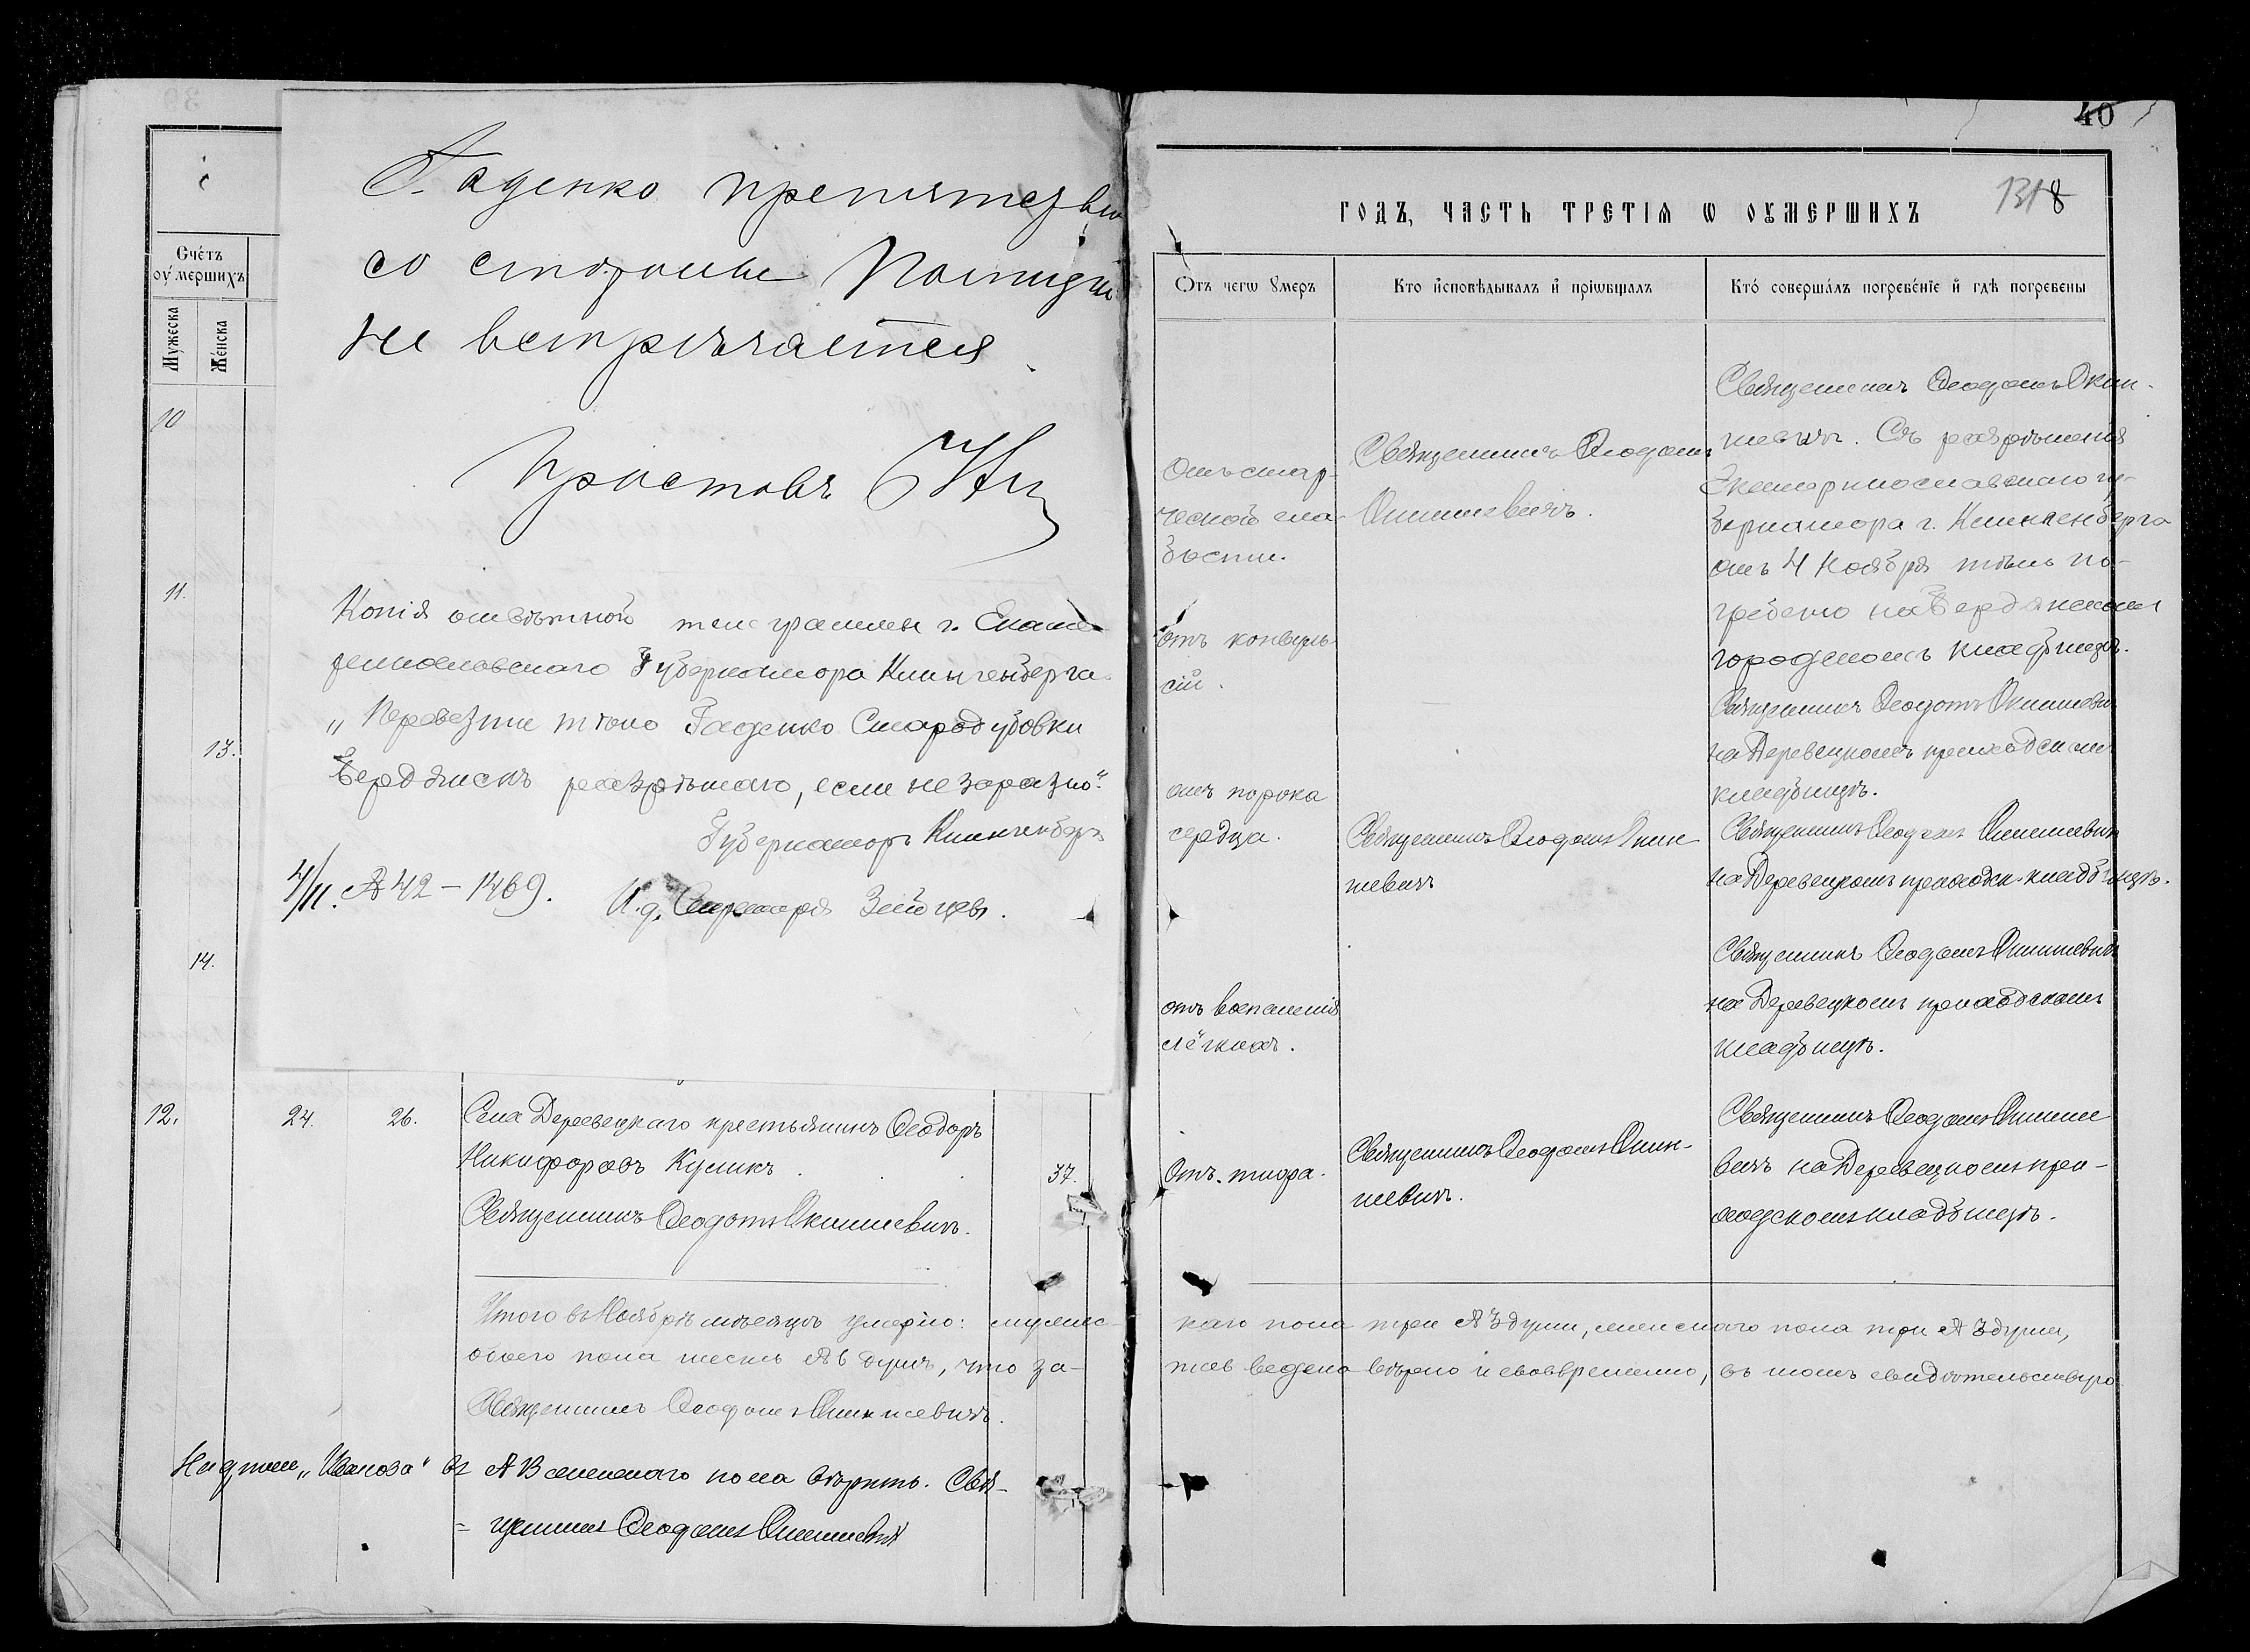 40
1318
Гаценко препятствія
со стороны Полиціи
не встрѣчается.
Приставъ
Копія отвѣтной телеграммы г. Екате-
ринославскаго Губернатора Клингенберга.
„Перевезти тѣло Гаценко Стародубовки
Бердянскъ разрѣшаю, если не заразно“.
Губернаторъ Клингенбергъ
4/11. № 42 – 1469. И.д. Секретаря Зейцевъ.
Счéтъ
оумершихъ
Мужеска
Жéнска
10
11.
13.
14.
12. 24. 26. Села Деревецкаго крестьянинъ Ѳеодоръ
Никифоровъ Куликъ. 37.
Священникъ Ѳеодотъ Окишевичъ.
Итого въ Ноябрѣ мѣсяцѣ умерло: мужес-
обоего пола шесть № 6 душъ, что за-
Священникъ Ѳеодотъ Окишевичъ.
На „Иванова“ въ № 13 женскаго пола вѣрить. Свя-
= щенникъ Ѳеодотъ Окишевичъ
ГОДЪ, ЧАСТЬ ТРЕТІѦ Ѡ ОУМЕРШИХЪ
Ѿтъ чегѡ ꙋмеръ
Кто и҆сповѣдывалъ и҆ прїѡбщалъ
Кто́ совершáлъ погребéніе и҆ гдѣ погребены
Отъ стар-
ческой сла-
бости.
Священникъ Ѳеодотъ
Окишевичъ.
Священникъ Ѳеодотъ Оки-
шевичъ. Съ разрѣшенія
Екатеринославскаго гу-
бернатора г. Клингенберга
отъ 4 Ноября тѣло по-
гребено на Бердянскомъ
городскомъ кладбищѣ.
отъ конвуль-
сій.
—
Священникъ Ѳеодотъ Окишевичъ
на Деревецкомъ приходском
кладбищѣ.
отъ порока
сердца.
Священникъ Ѳеодотъ Оки-
шевичъ
Священникъ Ѳеодотъ Окишевичъ
на Деревецкомъ приходск. кладбищѣ.
отъ воспаленія
лёгкихъ.
Священникъ Ѳеодотъ Окишевичъ
на Деревецкомъ приходскомъ
кладбищѣ.
Отъ тифа.
Священникъ Ѳеодотъ Оки-
шевичъ.
Священникъ Ѳеодотъ Окише
вичъ на Деревецкомъ при-
ходскомъ кладбищѣ.
каго пола три № 3 души, женскаго пола три № 3 души,
пись ведена вѣрно и своевременно, въ томъ свидѣтельствую